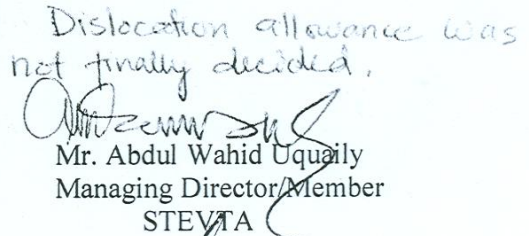 Dislocation allowance was
not finally decided.
Mr. Abdul Wahid Uqaily
Managing Director/Member
STEVTA